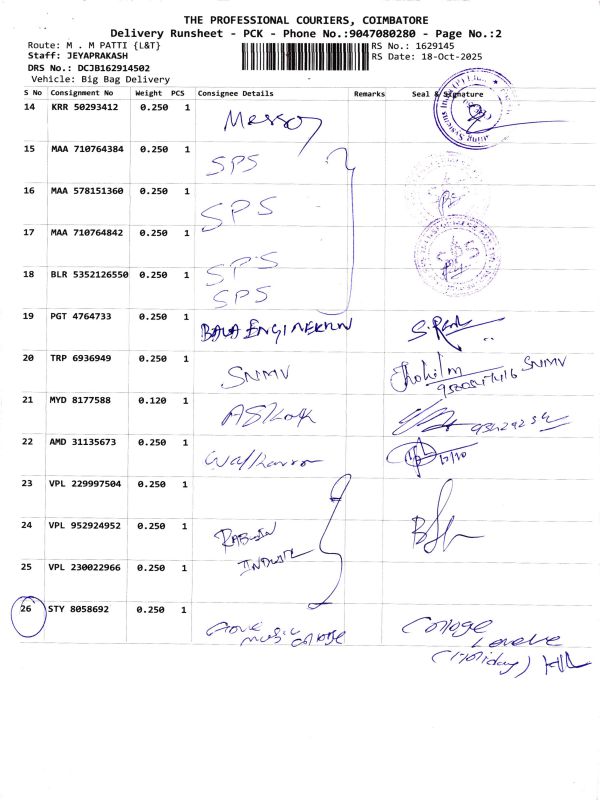 THE PROFESSIONAL COURIERS, COIMBATORE
Delivery Runsheet - PCK - Phone No.:9047080280 - Page No.:2
Route: M . M PATTI {L&T} RS No.: 1629145
Staff: JEYAPRAKASH RS Date: 18-Oct-2025
DRS No.: DCJB162914502
Vehicle: Big Bag Delivery
S No Consignment No Weight PCS Consignee Details Remarks Seal & Signature
14 KRR 50293412 0.250 1
15 MAA 710764384 0.250 1 SPS
16 MAA 578151360 0.250 1 SPS
17 MAA 710764842 0.250 1 SPS
18 BLR 5352126550 0.250 1 SPS
19 PGT 4764733 0.250 1 BALA
20 TRP 6936949 0.250 1 SNMV SNMV
21 MYD 8177588 0.120 1 AShok
22 AMD 31135673 0.250 1
23 VPL 229997504 0.250 1
24 VPL 952924952 0.250 1
25 VPL 230022966 0.250 1
26 STY 8058692 0.250 1 music college College
(Holiday)